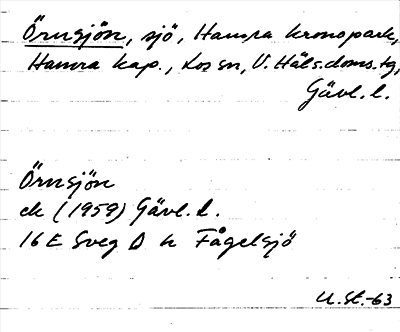 Örnsjön, sjö, Hamra kronopark,
Hamra kap., Los sn, V. Häls. doms. tg,
Gävl. l.
Örnsjön
ek (1959) Gävl. l.
16 E Sveg D h Fågelsjö
U. St. -63